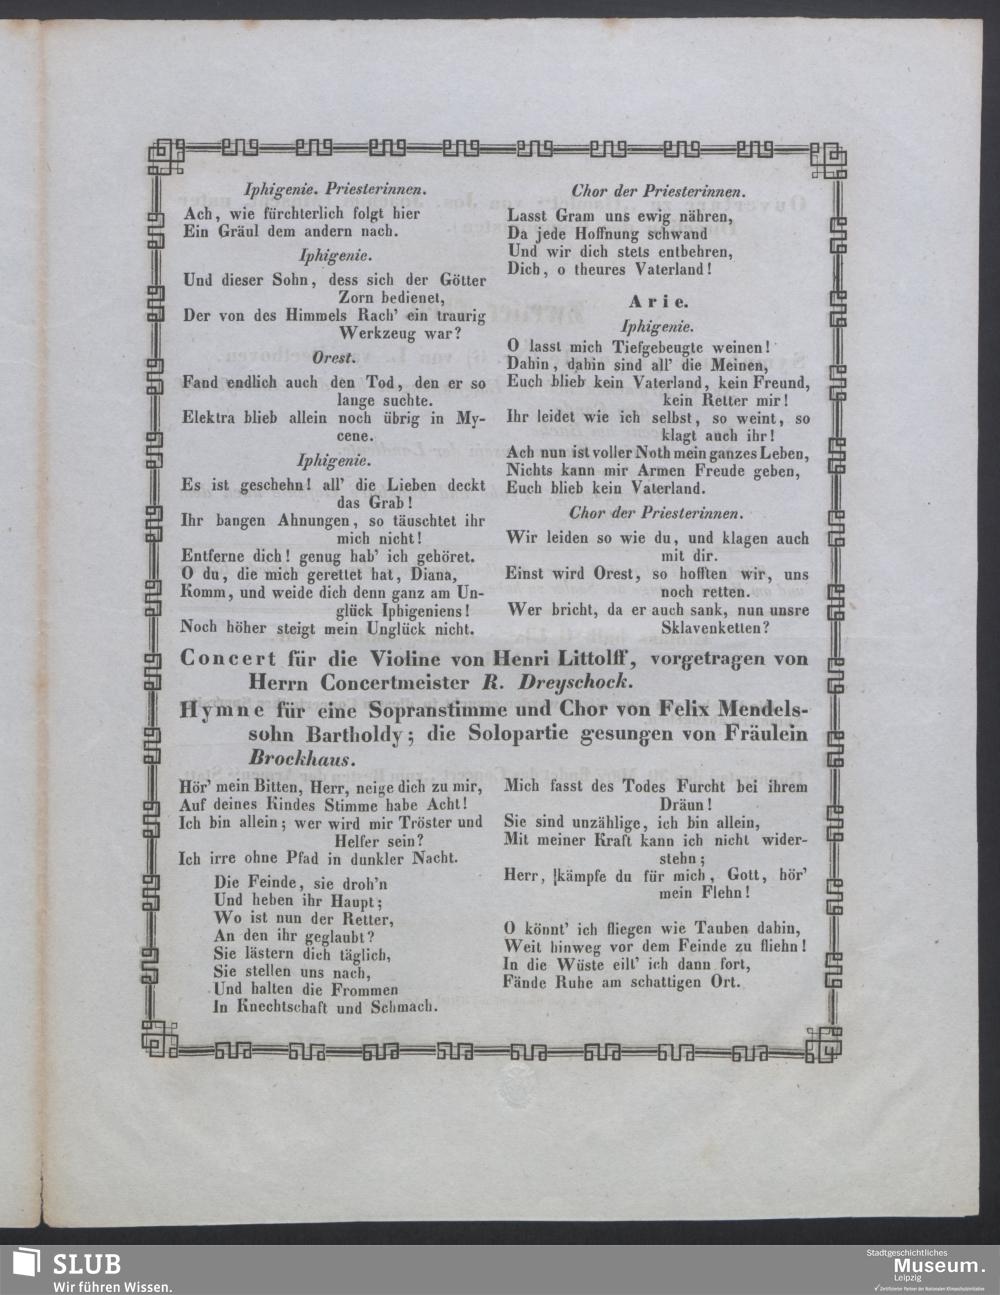 Iphigenie. Priesterinnen.
Ach, wie fürchterlich folgt hier
Ein Gräul dem andern nach.
Iphigenie.
Und dieser Sohn, dess sich der Götter
Zorn bedienet,
Der von des Himmels Rach' ein traurig
Werkzeug war?
Orest.
Fand endlich auch den Tod, den er so
lange suchte.
Elektra blieb allein noch übrig in My-
cene.
Iphigenie.
Es ist geschehn! all' die Lieben deckt
das Grab!
Ihr bangen Ahnungen, so täuschtet ihr
mich nicht!
Entferne dich! genug hab' ich gehöret.
O du, die mich gerettet hat, Diana,
Komm, und weide dich denn ganz am Un-
glück Iphigeniens!
Noch höher steigt mein Unglück nicht.
Chor der Priesterinnen.
Lasst Gram uns ewig nähren,
Da jede Hoffnung schwand
Und wir dich stets entbehren,
Dich, o theures Vaterland!
Arie.
Iphigenie.
O lasst mich Tiefgebeugte weinen!
Dahin, dahin sind all' die Meinen,
Euch blieb kein Vaterland, kein Freund,
kein Retter mir!
Ihr leidet wie ich selbst, so weint, so
klagt auch ihr!
Ach nun ist voller Noth mein ganzes Leben,
Nichts kann mir Armen Freude geben,
Euch blieb kein Vaterland.
Chor der Priesterinnen.
Wir leiden so wie du, und klagen auch
mit dir.
Einst wird Orest, so hofften wir, uns
noch retten.
Wer bricht, da er auch sank, nun unsre
Sklavenketten?
Concert für die Violine von Henri Littolff, vorgetragen von
Herrn Concertmeister R. Dreyschock.
Hymne für eine Sopranstimme und Chor von Felix Mendels-
sohn Bartholdy; die Solopartie gesungen von Fräulein
Brockhaus.
Hör' mein Bitten, Herr, neige dich zu mir,
Auf deines Kindes Stimme habe Acht!
Ich bin allein; wer wird mir Tröster und
Helfer sein?
Ich irre ohne Pfad in dunkler Nacht.
Die Feinde, sie droh'n
Und heben ihr Haupt;
Wo ist nun der Retter,
An den ihr geglaubt?
Sie lästern dich täglich,
Sie stellen uns nach,
Und halten die Frommen
In Knechtschaft und Schmach.
Mich fasst des Todes Furcht bei ihrem
Dräun!
Sie sind unzählige, ich bin allein,
Mit meiner Kraft kann ich nicht wider-
stehn;
Herr, kämpfe du für mich, Gott, hör'
mein Flehn!
O könnt' ich fliegen wie Tauben dahin,
Weit hinweg vor dem Feinde zu fliehn!
In die Wüste eilt' ich dann fort,
Fände Ruhe am schattigen Ort.
SLUB
Wir führen Wissen.
Stadtgeschichtliches
Museum.
Leipzig
Zertifizierter Partner der Nationalen Klimaschutzinitiative